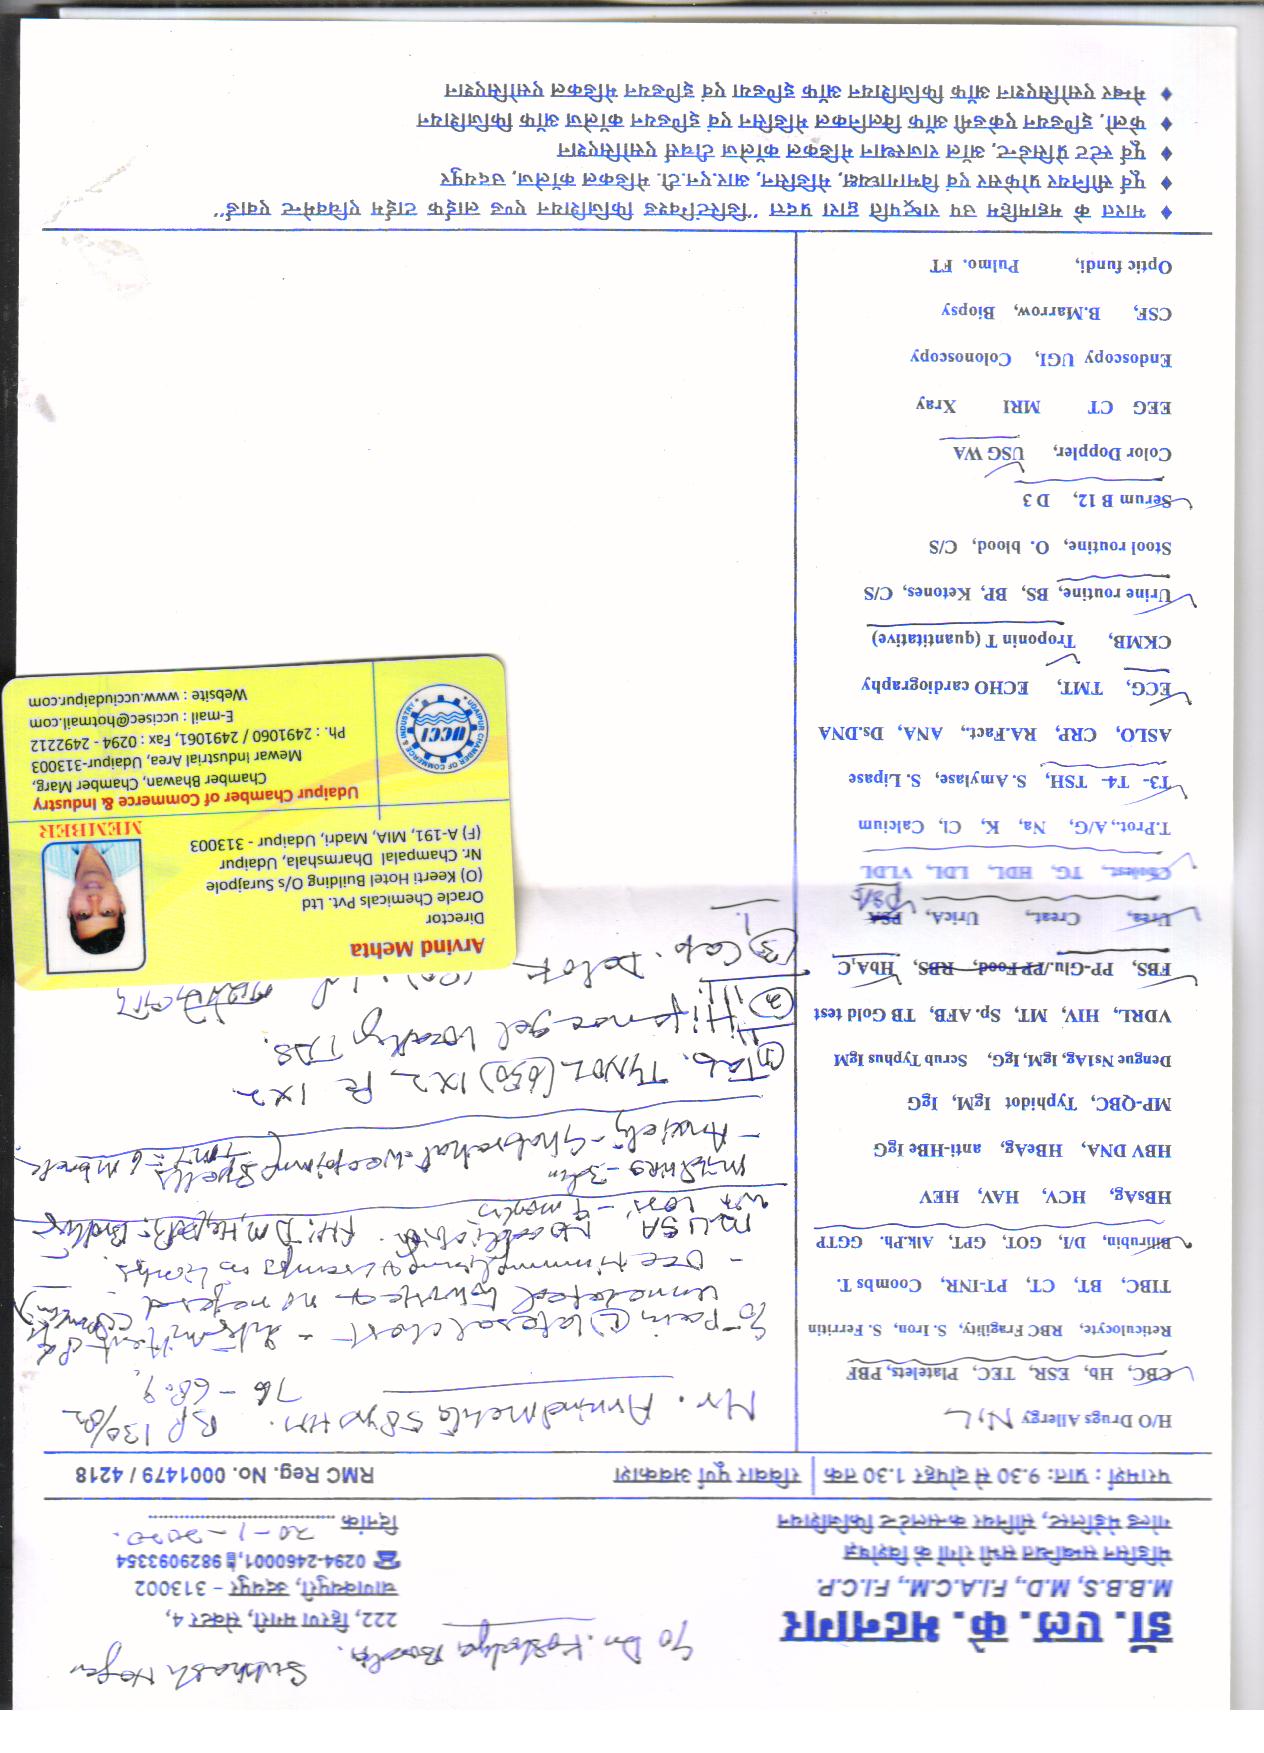 To Dr.
Subhash
डॉ. एल. के. भटनागर
M.B.B.S, M.D., F.I.A.C.M., F.I.C.P.
मेडिसिन सम्बन्धित सभी रोगों के विशेषज्ञ
गोल्ड मेडलिस्ट, सीनियर कन्सलटेन्ट फिजिशियन
222, हिरण मगरी, सेक्टर 4,
चाणक्यपुरी, उदयपुर - 313002
0294-2460001, 9829093354
दिनांक 20-1-2020
परामर्श : प्रातः 9.30 से दोपहर 1.30 तक | रविवार पूर्ण अवकाश
RMC Reg. No. 0001479 / 4218
H/O Drugs Allergy NIL
CBC, Hb, ESR, TEC, Platelets, PBF
Reticulocyte, RBC Fragility, S. Iron, S. Ferritin
TIBC, BT, CT, PT-INR, Coombs T.
Bilirubin, D/I, GOT, GPT, Alk.Ph. GGTP
HBsAg, HCV, HAV, HEV
HBV DNA, HBeAg, anti-HBe IgG
MP-QBC, Typhidot IgM, IgG
Dengue Ns1Ag, IgM, IgG, Scrub Typhus IgM
VDRL, HIV, MT, Sp. AFB, TB Gold test
FBS, PP-Glu./PP Food, RBS, HbA,C
Urea, Creat., UricA, PSA
Cholest., TG, HDL, LDL, VLDL
T.Prot., A/G, Na, K, Cl, Calcium
T3- T4- TSH, S. Amylase, S. Lipase
ASLO, CRP, RA.Fact., ANA, Ds.DNA
ECG, TMT, ECHO cardiography
CKMB, Troponin T (quantitative)
Urine routine, BS, BP, Ketones, C/S
Stool routine, O. blood, C/S
Serum B 12, D 3
Color Doppler, USG WA
EEG CT MRI Xray
Endoscopy UGI, Colonoscopy
CSF, B.Marrow, Biopsy
Optic fundi, Pulmo. FT
Mr. Arvind Mehta 58 yrs HM. BP 130/82
76 - 68.9
Pain lateral chest - intermittent
unrelated to no
- Occ
In USA No addiction. FH: DM, Hyp: Brother
loss - 4 months
- Anxiety - Ghabrahat - weeping spells
① Tab. TYNOL (650) 1X2 1X2
② Hifenac gel locally TDS.
③ Cap.
Arvind Mehta
Director
Oracle Chemicals Pvt. Ltd
(O) Keerti Hotel Building O/s Surajpole
Nr. Champalal Dharmshala, Udaipur
(F) A-191, MIA, Madri, Udaipur - 313003
MEMBER
UDAIPUR CHAMBER OF COMMERCE & INDUSTRY
UCCI
Udaipur Chamber of Commerce & Industry
Chamber Bhawan, Chamber Marg,
Mewar Industrial Area, Udaipur-313003
Ph. : 2491060 / 2491061, Fax : 0294 - 2492212
E-mail : uccisec@hotmail.com
Website : www.ucciudaipur.com
♦ भारत के महामहिम उप राष्ट्रपति द्वारा प्रदत्त "डिस्टिंग्विश्ड फिजिशियन एण्ड लाईफ टाईम एचिवमेन्ट एवार्ड"
♦ पूर्व सीनियर प्रोफेसर एवं विभागाध्यक्ष, मेडिसिन, आर.एन.टी. मेडिकल कॉलेज, उदयपुर
♦ पूर्व स्टेट प्रेसिडेन्ट, ऑल राजस्थान मेडिकल कॉलेज टीचर्स एसोसिएशन
♦ फेलो, इण्डियन एकेडमी ऑफ क्लिनिकल मेडिसिन एवं इण्डियन कॉलेज ऑफ फिजिशियन
♦ मेम्बर एसोसिएशन ऑफ फिजिशियन ऑफ इण्डिया एवं इण्डियन मेडिकल एसोसिएशन